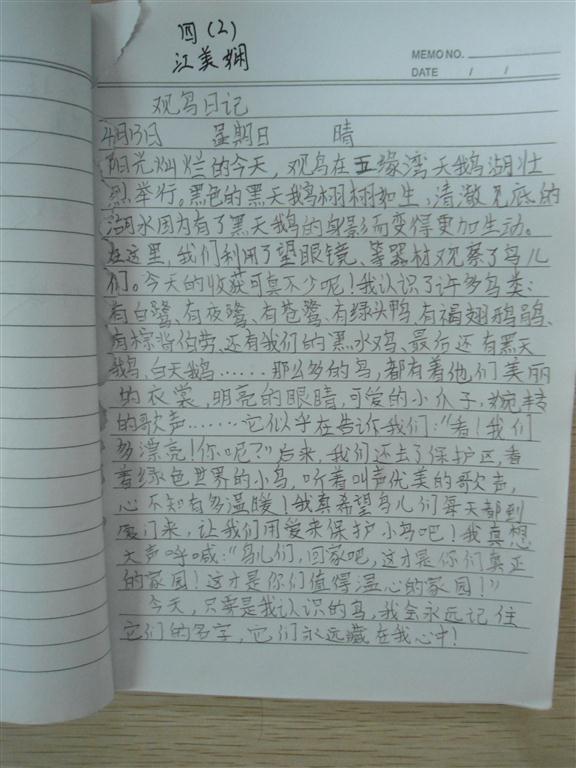 四(2)
江美娴
MEMO NO.
DATE / /
观鸟日记
4月13日 星期日 晴
阳光灿烂的今天,观鸟在五缘湾天鹅湖壮
烈举行。黑色的黑天鹅栩栩如生,清澈见底的
湖水因为有了黑天鹅的身影而变得更加生动。
在这里,我们利用了望眼镜、等器材观察了鸟儿
们。今天的收获可真不少呢!我认识了许多鸟类:
有白鹭、有夜鹭、有苍鹭、有绿头鸭、有褐翅鸦鹃、
有棕背伯劳、还有我们的黑水鸡、最后还有黑天
鹅、白天鹅……那么多的鸟,都有着他们美丽
的衣裳,明亮的眼睛,可爱的小爪子,婉转
的歌声……它似乎在告诉我们:“看!我们
多漂亮!你呢?”后来,我们还去了保护区,看
着绿色世界的小鸟,听着叫声优美的歌声,
心不知有多温暖!我真希望鸟儿们每天都到
厦门来,让我们用爱来保护小鸟吧!我真想
大声呼喊:“鸟儿们,回家吧,这才是你们真正
的家园!这才是你们值得温心的家园!”
今天,只要是我认识的鸟,我会永远记住
它们的名字,它们永远藏在我心中!